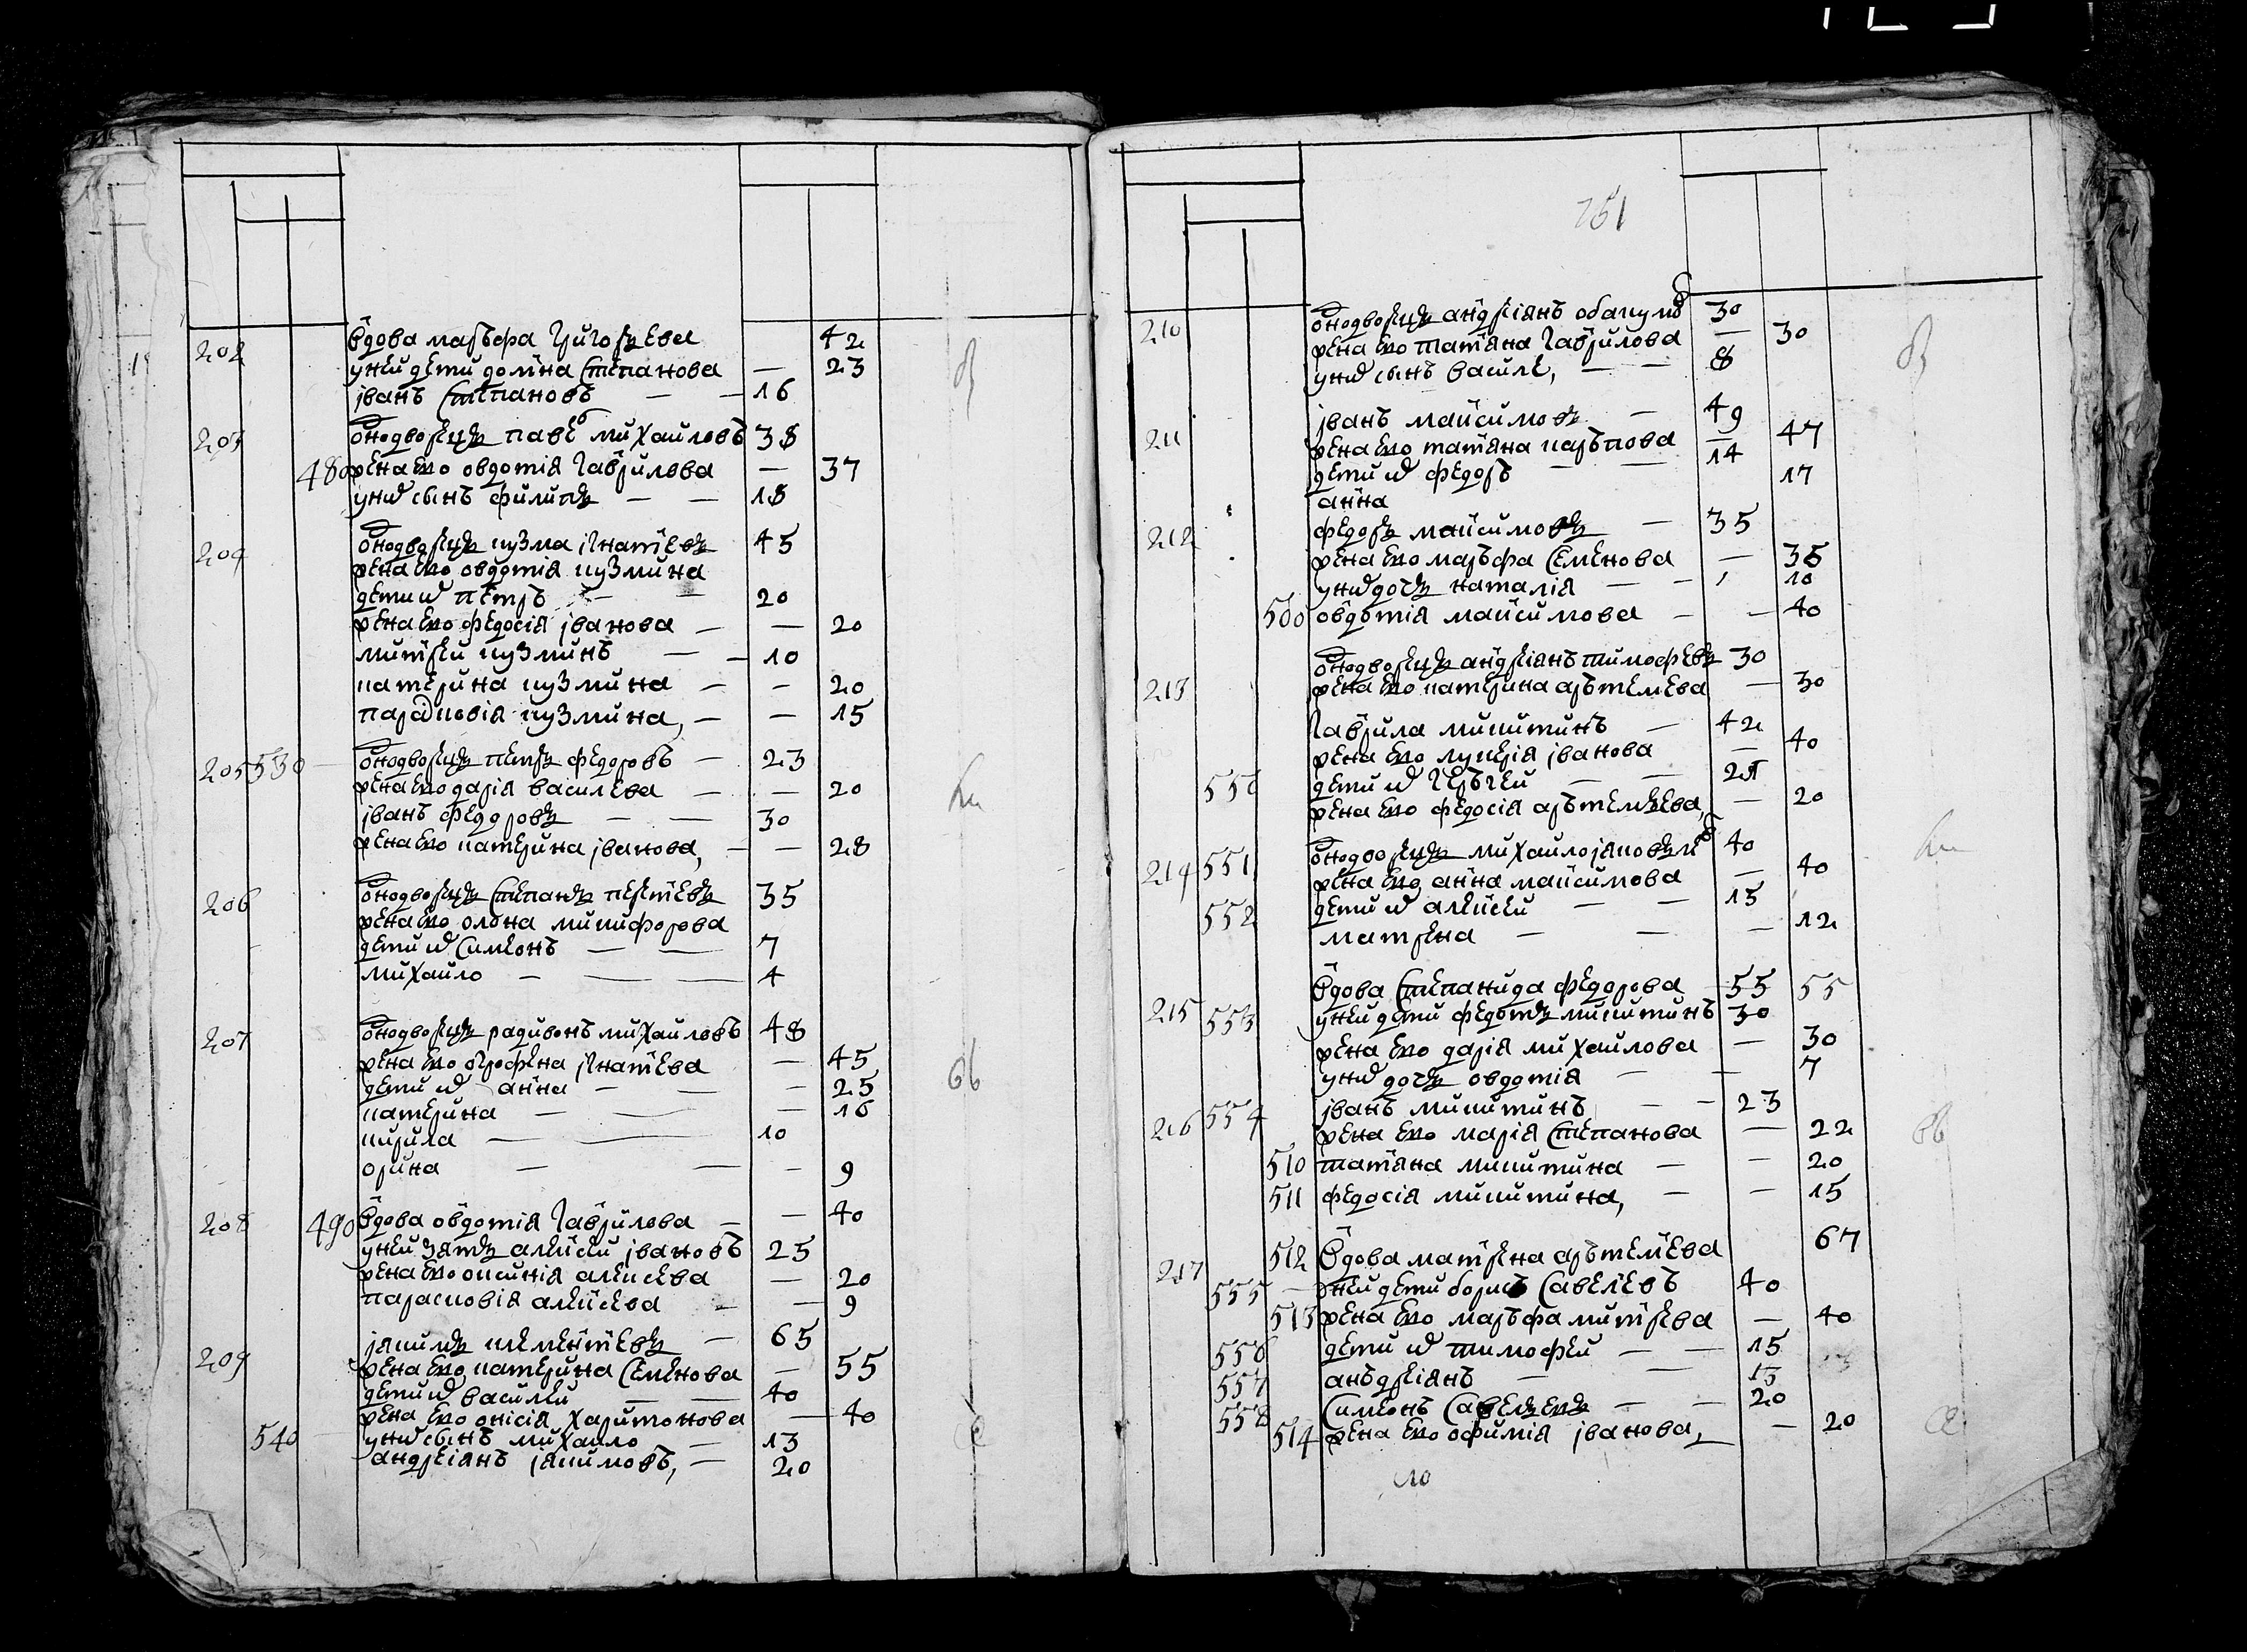 202 вдова марьфа григорьева 42
у неи дети домна степанова — 23
іванъ степановъ — — 16
203 однодворецъ павел михаиловъ 38
480 жена ево овдотия гаврилова — 37
у них сынъ филипъ — — 18
204 однодворецъ кузма ігнатиевъ 45
жена ево овдотия кузмина
дети их петръ — — 20
жена ево федосия іванова — — 20
митреи кузминъ — — 10
катерина кузмина — — 20
парасковия кузмина, — — 15
205 530 однодворецъ петръ федоровъ — 23
жена ево дария васильева — — 20
іванъ федоровъ — — 30
жена ево катерина іванова, — — 28
206 однодворецъ степанъ 35
жена ево олона микифорова
дети их симионъ — — 7
михаило — — 4
207 однодворецъ радивонъ михаиловъ 48
жена ево огрофена ігнатиева — 45
дети их анна — — — 25
катерина — — — 16
кирила — — 10
орина — — — 9
208 490 вдова овдотия гаврилова — — 40
у неи зять алексеи івановъ 25
жена ево оксиния алексева — 20
парасковия алексева — — 9
209 якимъ клементиевъ — 65
жена ево катерина семенова — 55
дети их василеи — — 40
жена ево онисия харитонова — 40
540 у них сынъ михаило — 13
андреиянъ якимовъ, — 20
151
210 однодворецъ андреиянъ 30
жена ево татияна гаврилова — 30
у них сынъ василе, — — 8
211 іванъ максимовъ — 49
жена ево татияна карьпова — 47
дети их федоръ — — 14
анна 17
212 федоръ максимовъ — 35
жена ево марьфа семенова — 35
у них дочь наталия — — 10
500 овдотия максимова — — 40
213 однодворецъ андреиянъ тимофеевъ 30
жена ево катерина арьтемева — 30
гаврила микитинъ — 42
жена ево лукерия іванова — 40
550 дети их — — 21
жена ево федосия арьтемьева, — 20
214 551 однодворецъ михаило 40
жена ево анна максимова — 40
552 дети их алексеи — — 15
матрена — — — 12
215 вдова степанида федорова 55 55
553 у неи дети федотъ микитинъ 30
жена ево дария михаилова — 30
у них дочь овдотия — — 7
216 554 іванъ микитинъ — — 23
жена ево мария степанова — 22
510 татияна микитина — — 20
511 федосия микитина, — — 15
217 512 вдова матрена арьтемиева 67
555 у неи дети борисъ савелиевъ 40
513 жена ево марьфа митрева — 40
556 дети их тимофеи — — 15
557 аньдреиянъ — — 13
558 симионъ савельевъ — — 20
514 жена ево офимия іванова, — 20